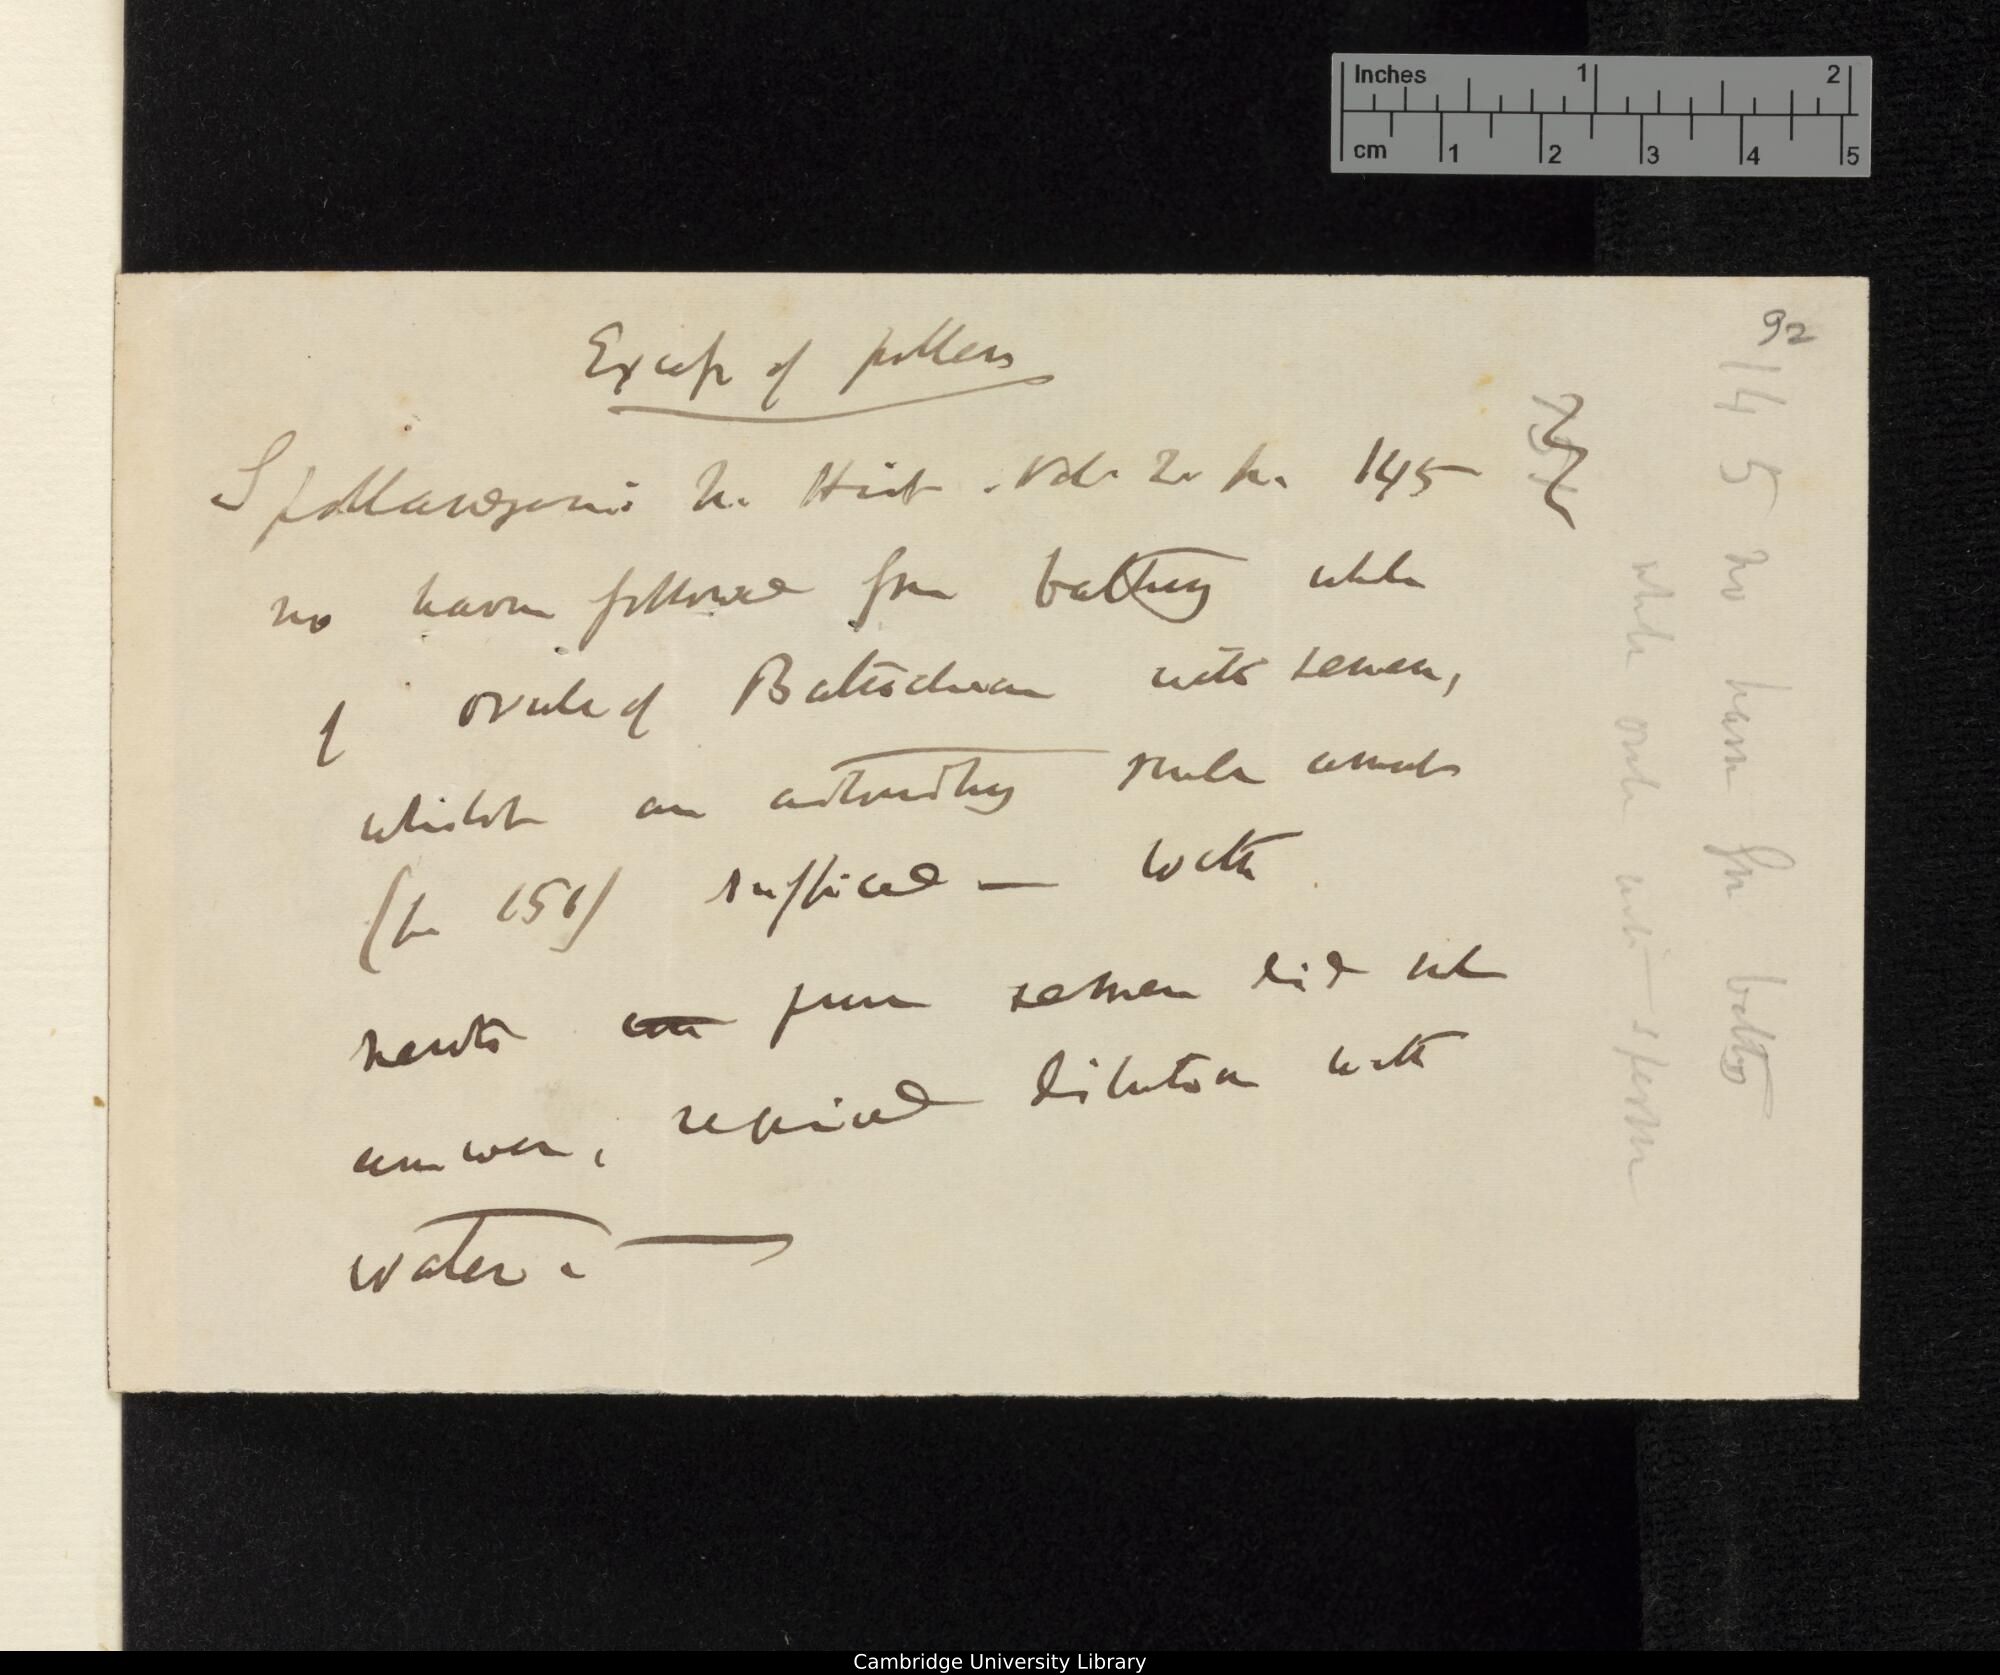 92
Excess of pollen
Spallanzani N. Hist. Vol. 2. p. 145
no harm followed from bathing whole
of ovule of Batrachian with semen,
whilst an astonishing small amount
(p 151) sufficed — With
newts pure semen did not
answer, required dilution with
water. —
145 no harm from bathing
whole ovule with sperm
Inches 1 2
cm 1 2 3 4 5
Cambridge University Library